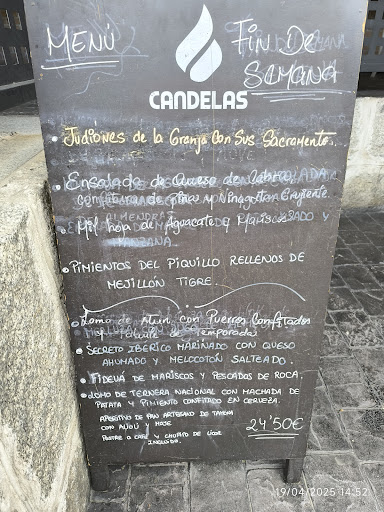 MENÚ
FIN DE
SEMANA
CANDELAS
• Judiones de la Granja Con Sus Sacramento.
• Ensalada de Queso de Cabra
confitura de y Vinagreta
• Mil hoja de Aguacate y Mariscos
• PIMIENTOS DEL PIQUILLO RELLENOS DE
MEJILLÓN TIGRE.
• Lomo de Atún con Puerros Confitados
y de Temporadas
• SECRETO IBERICO MARINADO CON QUESO
AHUMADO Y MELOCOTÓN SALTEADO.
• FIDEUÁ DE MARISCOS Y PESCADOS DE ROCA.
• LOMO DE TERNERA NACIONAL CON MACHADA DE
PATATA Y PIMIENTO CONFITADO EN CERVEZA.
APERITIVO DE PAN ARTESANO DE TAHONA
CON ALIOLI Y MOJE
POSTRE O CAFÉ Y CHUPITO DE LICOR
INCLUIDO.
24'50€
19/04/2025 14:52